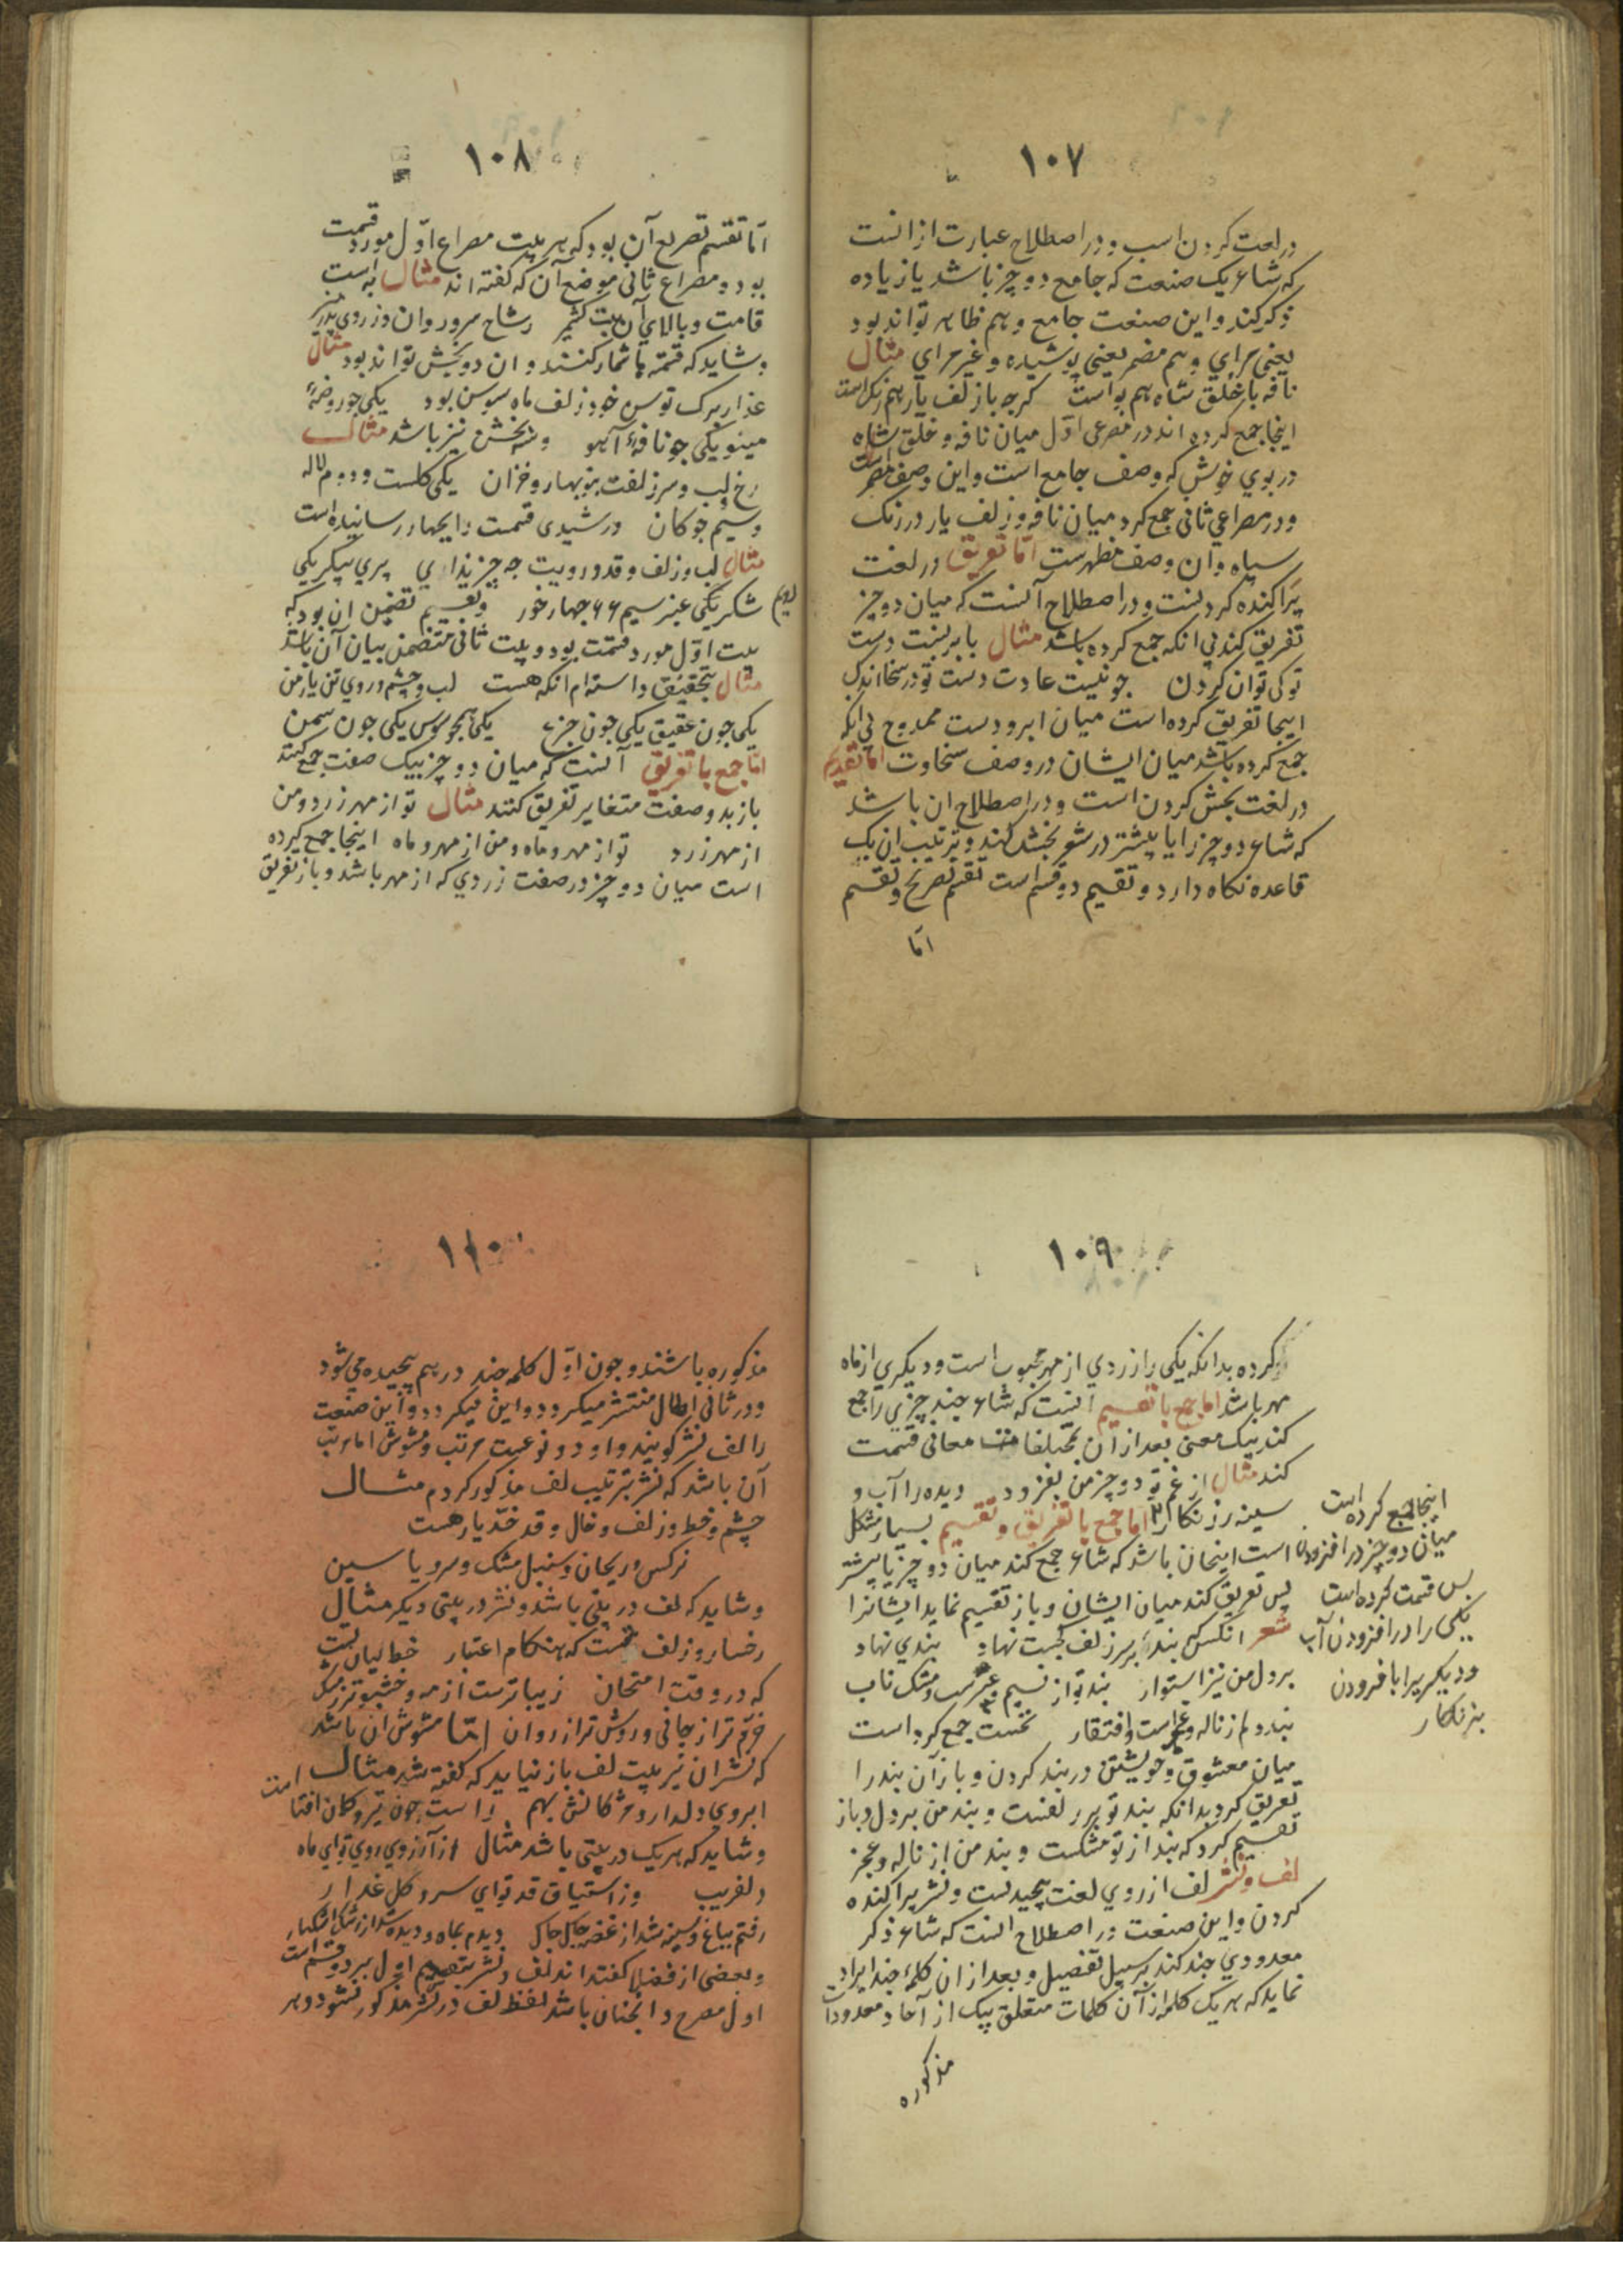 ١٠٧
در لغت کردن است و در اصطلاح عبارت از انست
که شاعر یک صنعت که جامع دو چیز باشد یا زیاده
ذکر کند و این صنعت جامع و هم ظاهر تواند بود
یعنی مرای و هم مضمر یعنی پوشیده و غیر مرای مثال
نافه با خلق شاه هم بو است کرچه با زلف یار همرنک است
اینجا جمع کرده اند در مصرعی اوّل میان نافه و خلق شاه
در بوی خوش که وصف جامع است و این وصف مضمر است
و در مصراعی ثانی جمع کرد میان نافه و زلف یار در رنک
سیاه و ان وصف مظهرست امّا تفریق در لغت
پراکنده کردنست و در اصطلاح آنست که میان دو چیز
تفریق کند بی انکه جمع کرده باشد مثال با ابر نسبت دست
تو کی توان کردن چو نیست عادت دست تو در سخا اندک
اینجا تفریق کرده است میان ابر و دست ممدوح بی انکه
جمع کرده باشد میان ایشان در وصف سخاوت امّا تقسیم
در لغت بخش کردن است و در اصطلاح ان باشد
که شاعر دو چیز را یا بیشتر در شعر بخشد کند و بترتیب ان یک
قاعده نکاه دارد و تقسیم دو قسم است تقسیم تصریح و تقسیم
امّا
١٠٨
امّا تقسیم تصریع آن بود که هر بیت مصراع اوّل مورد قسمت
بود و مصراع ثانی موضع آن که کفته اند مثال
قامت و بالای آن بت کشمیر سرو روان
و شاید که قسمتها شمار کنند و ان دو بخش تواند بود مثال
عذار برک خود زلف ماه سوسن بود یکی چو روضهٔ
مینو یکی چو نافهٔ آهو و سه بخش نیز باشد مثال
رخ و لب و سر زلفت بنوبهار و خزان یکی کلست و دوم لاله
و سیم چوکان و رشیدی قسمت را بچهار رسانیده است
مثال لب و زلف و قد و رویت چه چیزند ای پری پیکر یکی
شکر یکی عنبر سیم چهارم خور و تقسیم تضمن ان بود که
بیت اوّل مورد قسمت بود و بیت ثانی متضمن بیان آن باشد
مثال بتحقیق دانسته ام انکه هست لب و چشم و روی تن یار من
یکی چون عقیق یکی چون جزع یکی همچو سوسن یکی چون سمن
امّا جمع با تفریق آنست که میان دو چیز بیک صفت جمع کنند
باز بدو صفت متغایر تفریق کنند مثال تو از مهر زرد و من
از مهر زرد تو از مهر و ماه و من از مهر و ماه اینجا جمع کرده
است میان دو چیز در صفت زردی که از مهر باشد و باز تفریق
١٠٩
کرده بدانکه یکی را زردی از مهر محبوب است و دیکری از ماه
مهر باشد اما جمع با تقسیم انست که شاعر چند چیزی را جمع
کند بیک معنی بعد از ان معانی قسمت
کند مثال از غم تو دو چیز من بفزود دیده را آب و
سینه را زنکار امّا جمع با تفریق و تقسیم بسیار مشکل
است اینچنان باشد که شاعر جمع کند میان دو چیز یا بیشتر
پس تفریق کند میان ایشان و باز تقسیم نماید ایشانرا
شعر انکس که بند بر سر زلف کجت نهاد بندی نهاد
بر دل من نیز استوار بند تو از نسیم عنبرست و مشک ناب
بند دلم ز ناله و عجز است و افتقار نخست جمع کرد است
میان معشوق و خویشتن در بند کردن و باز آن بند را
تفریق کرد بدانکه بند تو بر زلفت و بند من بر دل و باز
تقسیم کرد که بند از تو مشکست و بند من از ناله و عجز
لف و نشر لف از روی لغت پیچیدنست و نشر پراکنده
کردن و این صنعت در اصطلاح انست که شاعر ذکر
معدودی چند کند بر سبیل تفصیل و بعد از ان کلمهٔ چند ایراد
نماید که هر یک کلمه از آن کلمات متعلق بیک از آحاد معدودات
مذکوره
اینجا جمع کرده است
میان دو چیز در افزودن
پس قسمت کرده است
یکی را در افزودن آب
و دیکریرا با فزودن
بزنکار
١١٠
مذکوره باشند و چون اوّل کلمه چند در هم پیچیده می شود
و در ثانی الحال منتشر میکردد و این میکردد و این صنعت
را لف نشر کویند و او دو نوعست مرتب و مشوش اما مرتب
آن باشد که نشر بترتیب لف مذکور کردم مثال
چشم و خط و زلف و خال و قد خدّ یار هست
نرکس و ریحان و سنبل مشک و سرو یاسین
و شاید که لف در بیتی باشد و نشر در بیتی دیکر مثال
رخسار و زلف که هنکام اعتبار خط لبان لبت
که در وقت امتحان زیباترست از مه و خشبوتر ز مشک
خرّم تر از جانی و روشن تر از روان امّا مشوش ان باشد
که نشر ان نیز بیت لف باز نیاید که کفته شد مثال
ابروی دلدار و مژکانش بهم راست چون تیر و کمان افتا است
و شاید که هر یک در بیتی باشد مثال از آرزوی روی تو ای ماه
دلفریب وز اشتیاق قد تو ای سرو کل عذار
رفتم بباغ و سینه شد از غصه چاک چاک دیدم بماه و دیده شد از رشک اشکبار
و بعضی از فضلا کفته اند لف و نشر بر دو قسم است
اول مصرح و انچنان باشد لفظ لف و در نشر مذکور نشود و هر